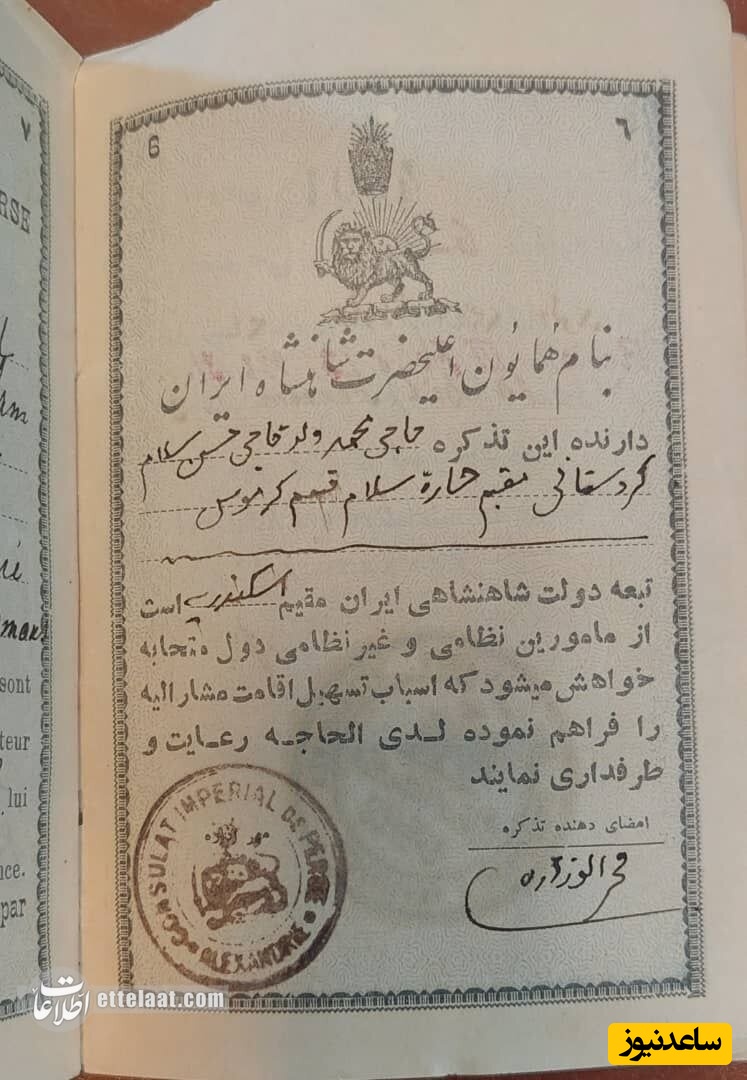 6
٦
بنام همایون اعلیحضرت شاهنشاه ایران
دارنده این تذکره حاجی محمد ولد حاجی حسن سلام
کردستانی مقیم حارة سلام قسم کرموس
تبعه دولت شاهنشاهی ایران مقیم اسکندریه است
از مامورین نظامی و غیر نظامی دول متحابه
خواهش میشود که اسباب تسهیل اقامت مشارالیه
را فراهم نموده لدی الحاجه رعایت و
طرفداری نمایند
امضای دهنده تذکره
CONSULAT IMPERIAL DE PERSE
ALEXANDRIE
٧
RSE
sont
teur
lui
nce.
par
اطلاعات ettelaat.com
ساعدنیوز